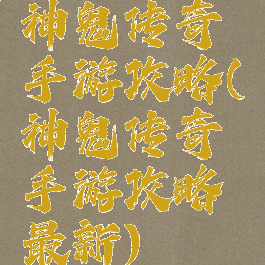 神鬼传奇
手游攻略(
神鬼传奇
手游攻略
最新)